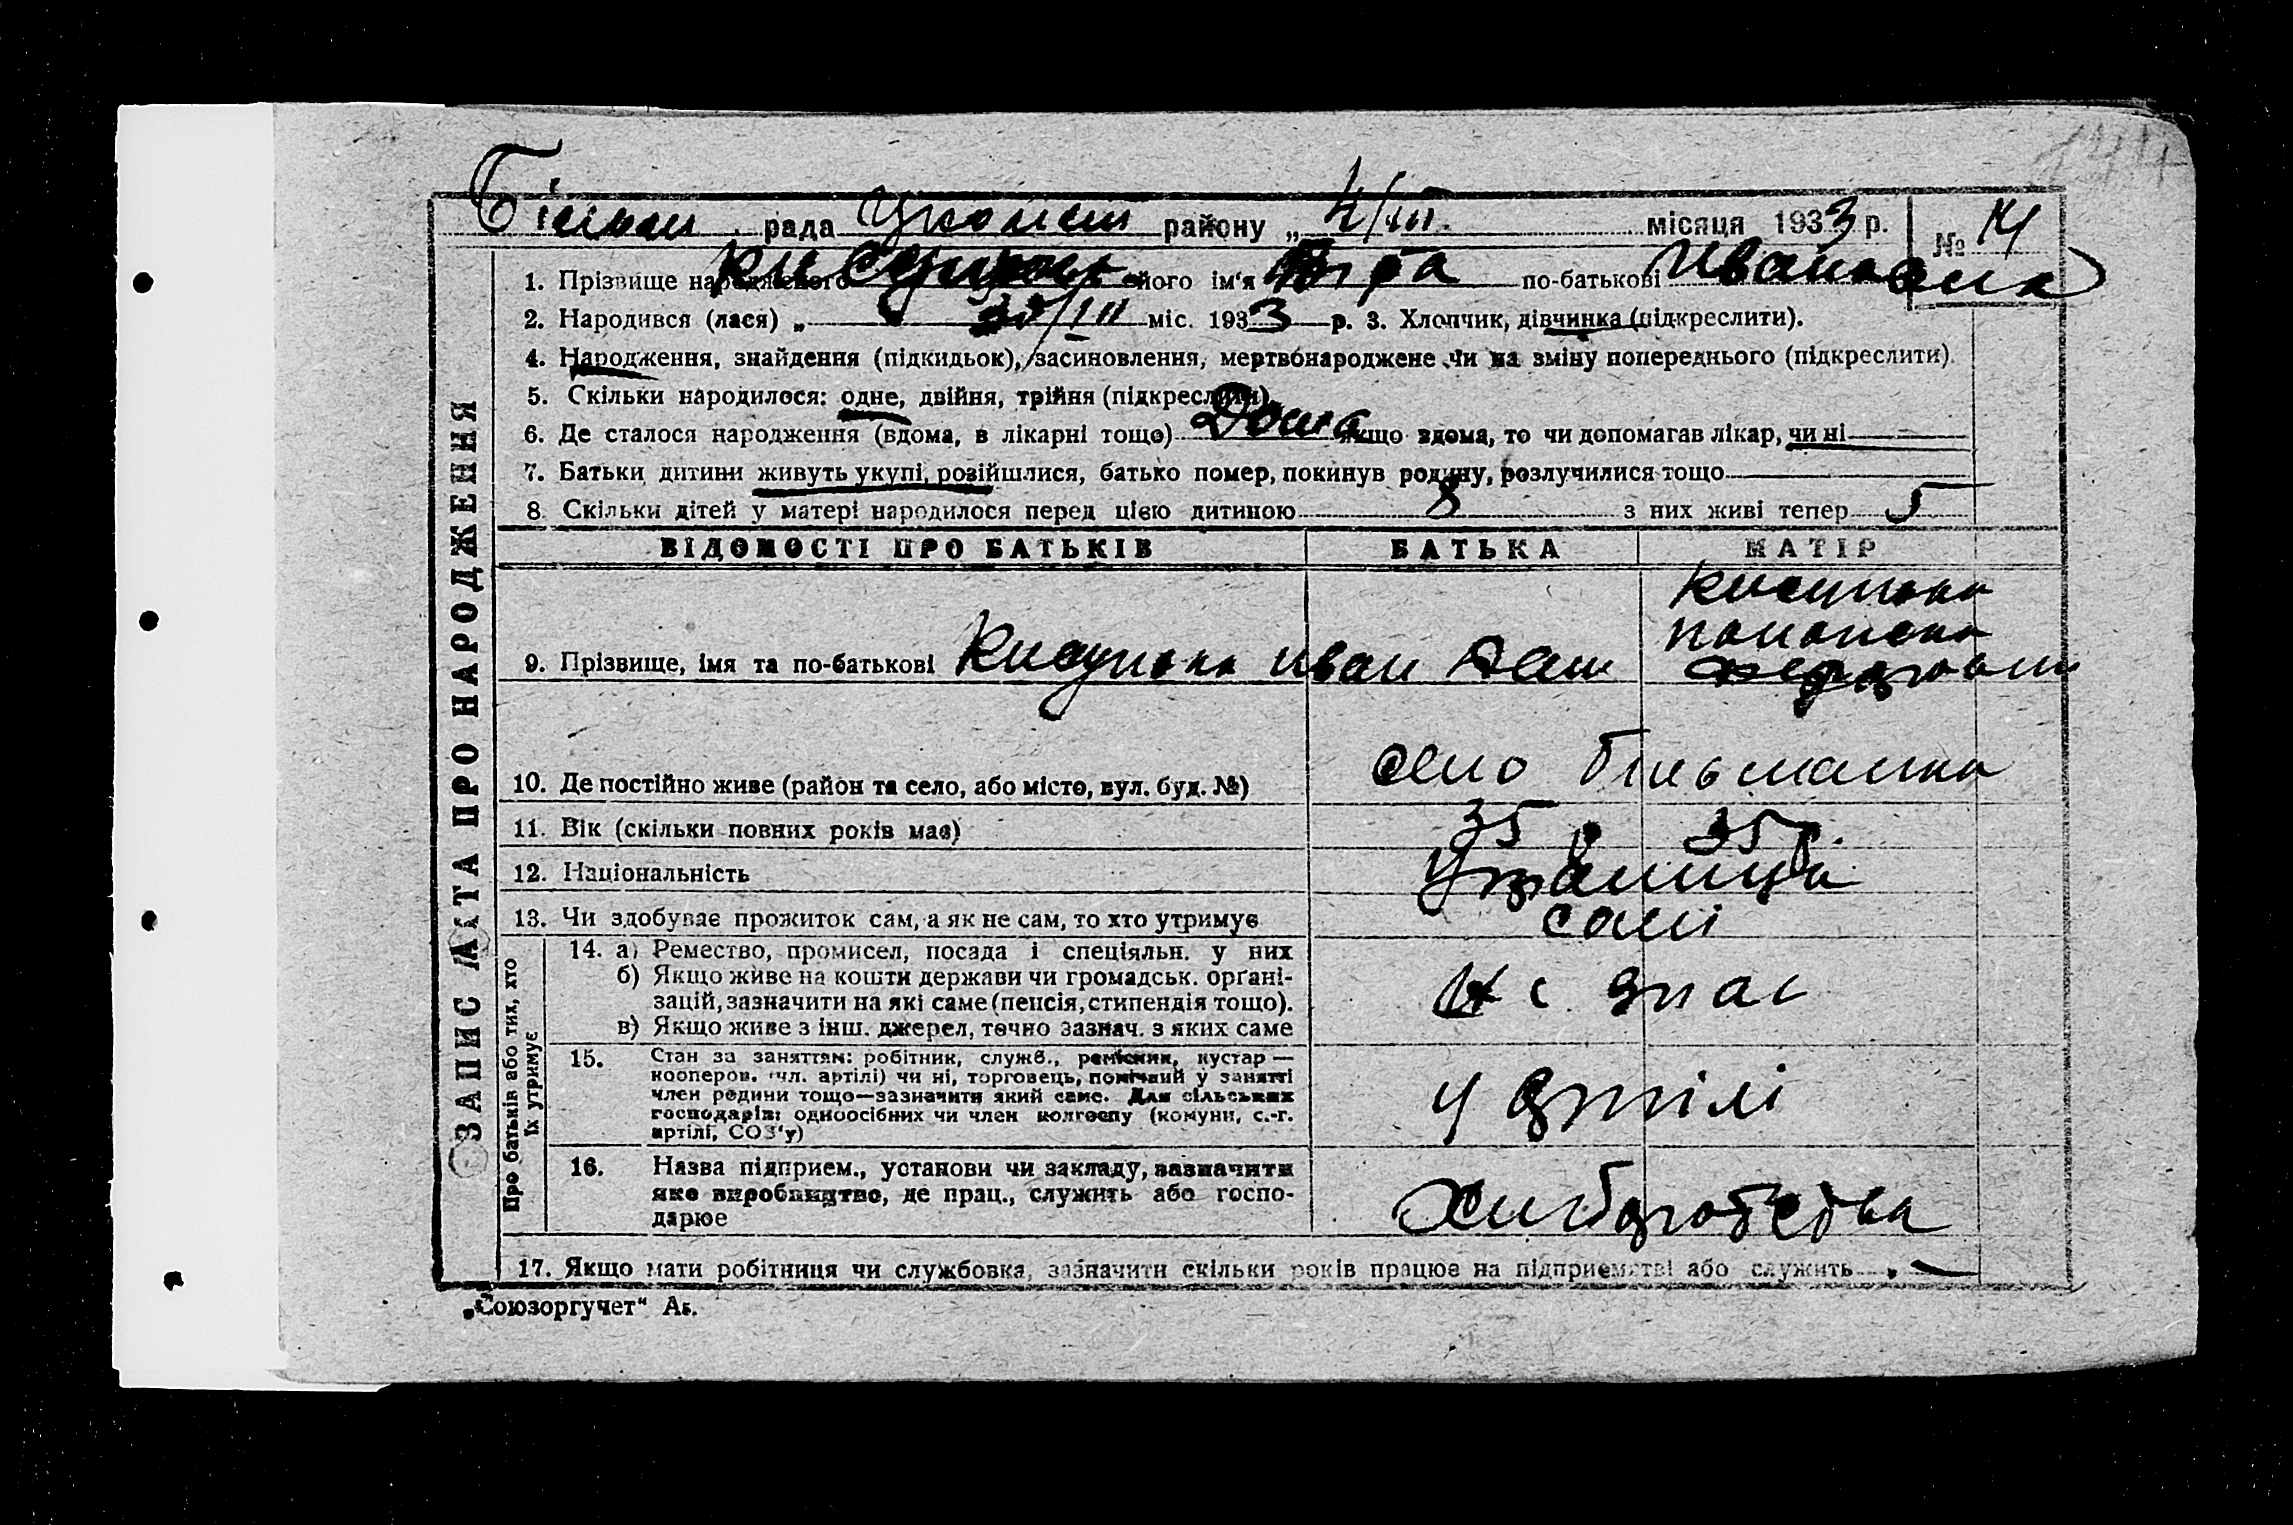 144
Більман. рада Цюсист району „ 4/VIII. місяця 1933 р. № 14
1. Прізвище народженого його ім'я Віра по-батькові Иванівна
2. Народився (лася) „ 30/III міс. 1933 р. 3. Хлопчик, дівчинка (підкреслити).
4. Народження, знайдення (підкидьок), засиновлення, мертвонароджене чи на зміну попереднього (підкреслити).
5. Скільки народилося: одне, двійня, трійня (підкреслити).
6. Де сталося народження (вдома, в лікарні тощо) Дома якщо вдома, то чи допомагав лікар, чи ні
7. Батьки дитини живуть укупі, розійшлися, батько помер, покинув родину, розлучилися тощо
8. Скільки дітей у матері народилося перед цією дитиною 8 з них живі тепер 5
ВІДОМОСТІ ПРО БАТЬКІВ БАТЬКА МАТІР
9. Прізвище, імя та по-батькові Иван
10. Де постійно живе (район та село, або місто, вул. буд. №) село Більманка
11. Вік (скільки повних років має) 35 р 35 р.
12. Національність Українці
13. Чи здобуває прожиток сам, а як не сам, то хто утримує самі
14. а) Ремество, промисел, посада і спеціяльн. у них
б) Якщо живе на кошти держави чи громадськ. органі-
зацій, зазначити на які саме (пенсія, стипендія тощо).
в) Якщо живе з інш. джерел, точно зазнач. з яких саме
Не знає
15. Стан за заняттям: робітник, служб., ремісник, кустар —
кооперов. (чл. артілі) чи ні, торговець, помічний у занятті
член родини тощо—зазначити який саме. Для сільських
господарів: одноосібних чи член колгоспу (комуни, с.-г.
артілі, СОЗ'у)
у артілі
16. Назва підприєм., установи чи закладу, зазначити
яке виробництво, де прац., служить або госпо-
дарює
17. Якщо мати робітниця чи службовка, зазначити скільки років працює на підприємстві або служить
„Союзоргучет“
ЗАПИС АКТА ПРО НАРОДЖЕННЯ
Про батьків або тих, хто
їх утримує